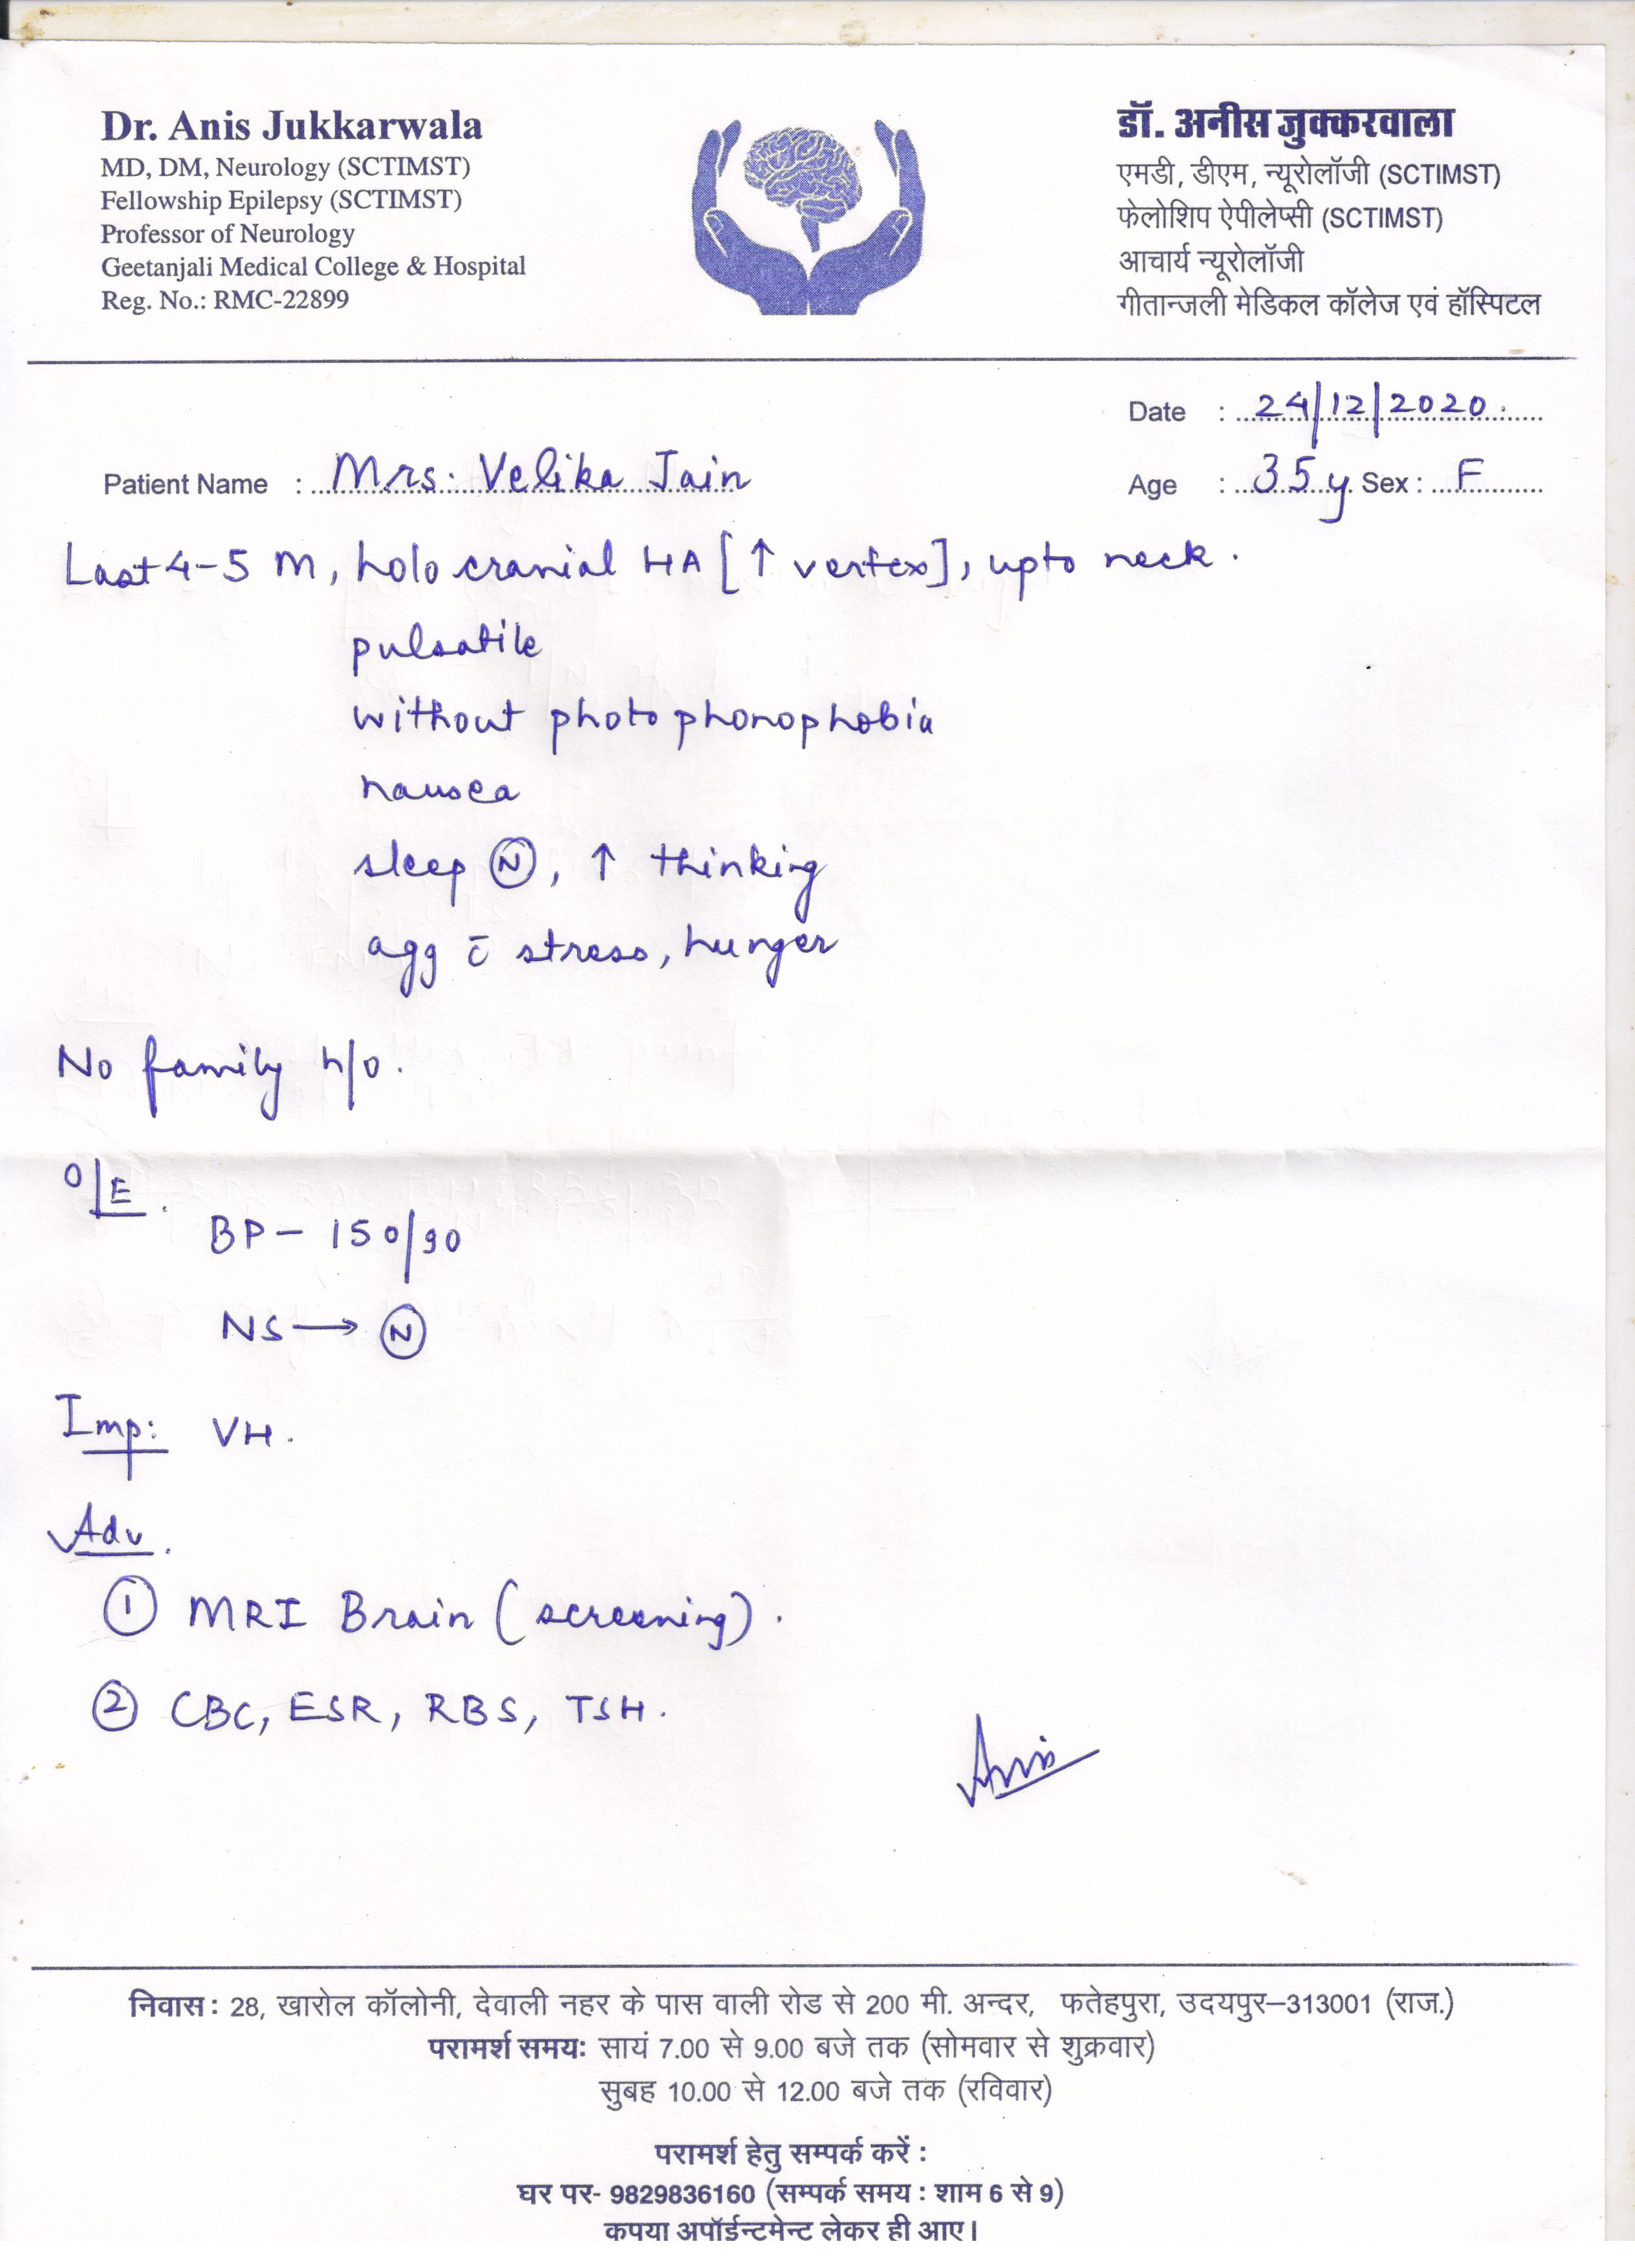 Dr. Anis Jukkarwala
MD, DM, Neurology (SCTIMST)
Fellowship Epilepsy (SCTIMST)
Professor of Neurology
Geetanjali Medical College & Hospital
Reg. No.: RMC-22899
डॉ. अनीस जुक्करवाला
एमडी, डीएम, न्यूरोलॉजी (SCTIMST)
फेलोशिप ऐपीलेप्सी (SCTIMST)
आचार्य न्यूरोलॉजी
गीतान्जली मेडिकल कॉलेज एवं हॉस्पिटल
Date : 24/12/2020.
Patient Name : Mrs. Velika Jain
Age : 35 y Sex : F
Last 4-5 m, holocranial HA [↑ vertex], upto neck.
pulsatile
without photophonophobia
nausea
sleep Ⓝ, ↑ thinking
agg c̄ stress, hunger
No family h/o.
O/E.
BP - 150/90
NS → Ⓝ
Imp: VH.
Adv.
① MRI Brain (screening).
② CBC, ESR, RBS, TSH.
Anis
निवास : 28, खारोल कॉलोनी, देवाली नहर के पास वाली रोड से 200 मी. अन्दर, फतेहपुरा, उदयपुर–313001 (राज.)
परामर्श समयः सायं 7.00 से 9.00 बजे तक (सोमवार से शुक्रवार)
सुबह 10.00 से 12.00 बजे तक (रविवार)
परामर्श हेतु सम्पर्क करें :
घर पर- 9829836160 (सम्पर्क समय : शाम 6 से 9)
कृपया अपॉईन्टमेन्ट लेकर ही आए।